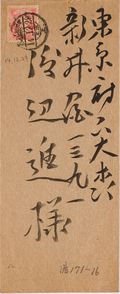 東京府下大森
新井宿一三九一
渡辺進様
14.12.29
濱171-16